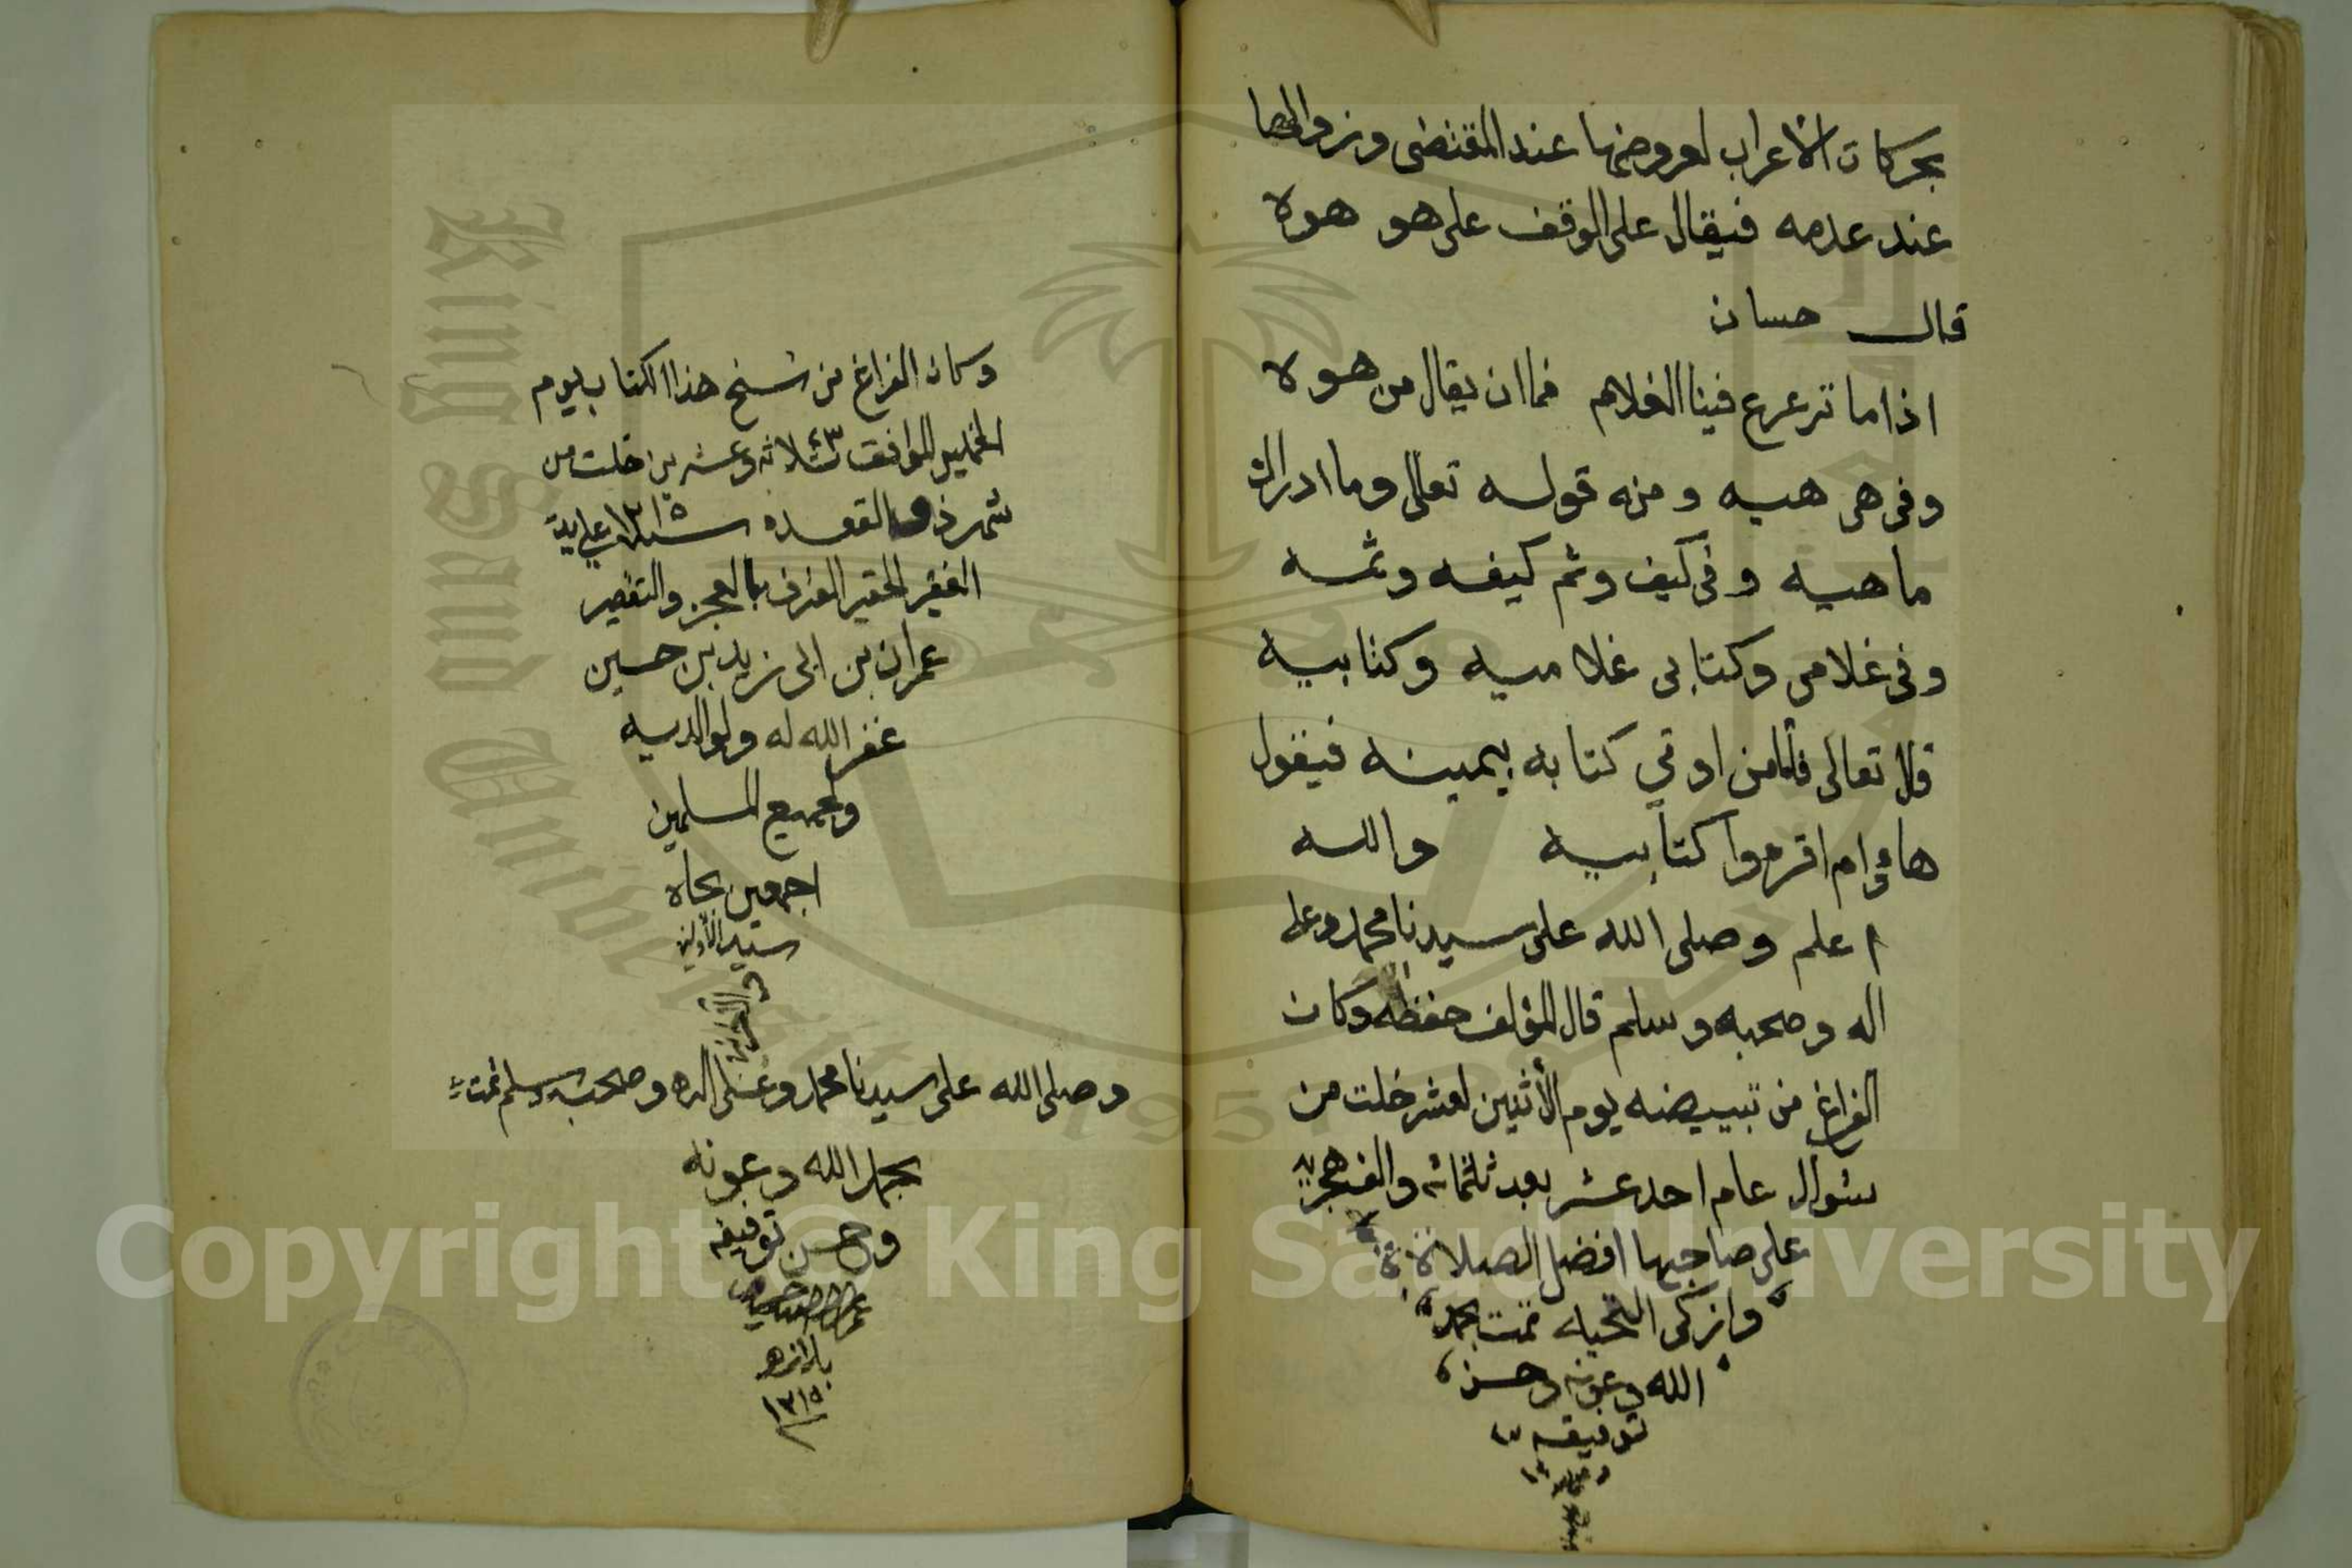 بحركات الاعراب لعروضها عند المقتضى وزوالها
عند عدمه فيقال على الوقف على هو هوه
قال حسان
اذا ما ترعرع فينا الغلام فما ان يقال من هوه
وفى هى هيه ومنه قوله تعالى وما ادراك
ماهيه وفى كيف وثم كيفه وثمه
وفى غلامى وكتابى غلاميه وكتابيه
قال تعالى فأما من اوتي كتابه بيمينه فيقول
هاؤم اقرءوا كتابيه والله
اعلم وصلى الله على سيدنا محمد وعلى
اله وصحبه وسلم قال المؤلف حفظه وكان
الفراغ من تبييضه يوم الأثنين لعشر خلت من
شوال عام احد عشر بعد ثلثمائه والف هجريه
على صاحبها افضل الصلاة
وازكى التحيه تمت بحمد
الله وعونه وحسن
توفيقه
وكان الفراغ من نسخ هذا الكتاب يوم
الخميس الموافق ٢٣ ثلاثه وعشرين خلت من
شهر ذو القعده سنة ١٣١٥ على يد
الفقير الحقير المعترف بالعجز والتقصير
عمران بن ابى زيد بن حسين
غفر الله له ولوالديه
ولجميع المسلمين
اجمعين بجاه
سيد الأولين
والاخرين
وصلى الله على سيدنا محمد وعلى اله وصحبه وسلم تمت
بحمد الله وعونه
وحسن توفيقه
١٣١٥
Copyright © King Saud University
King Saud University
1957